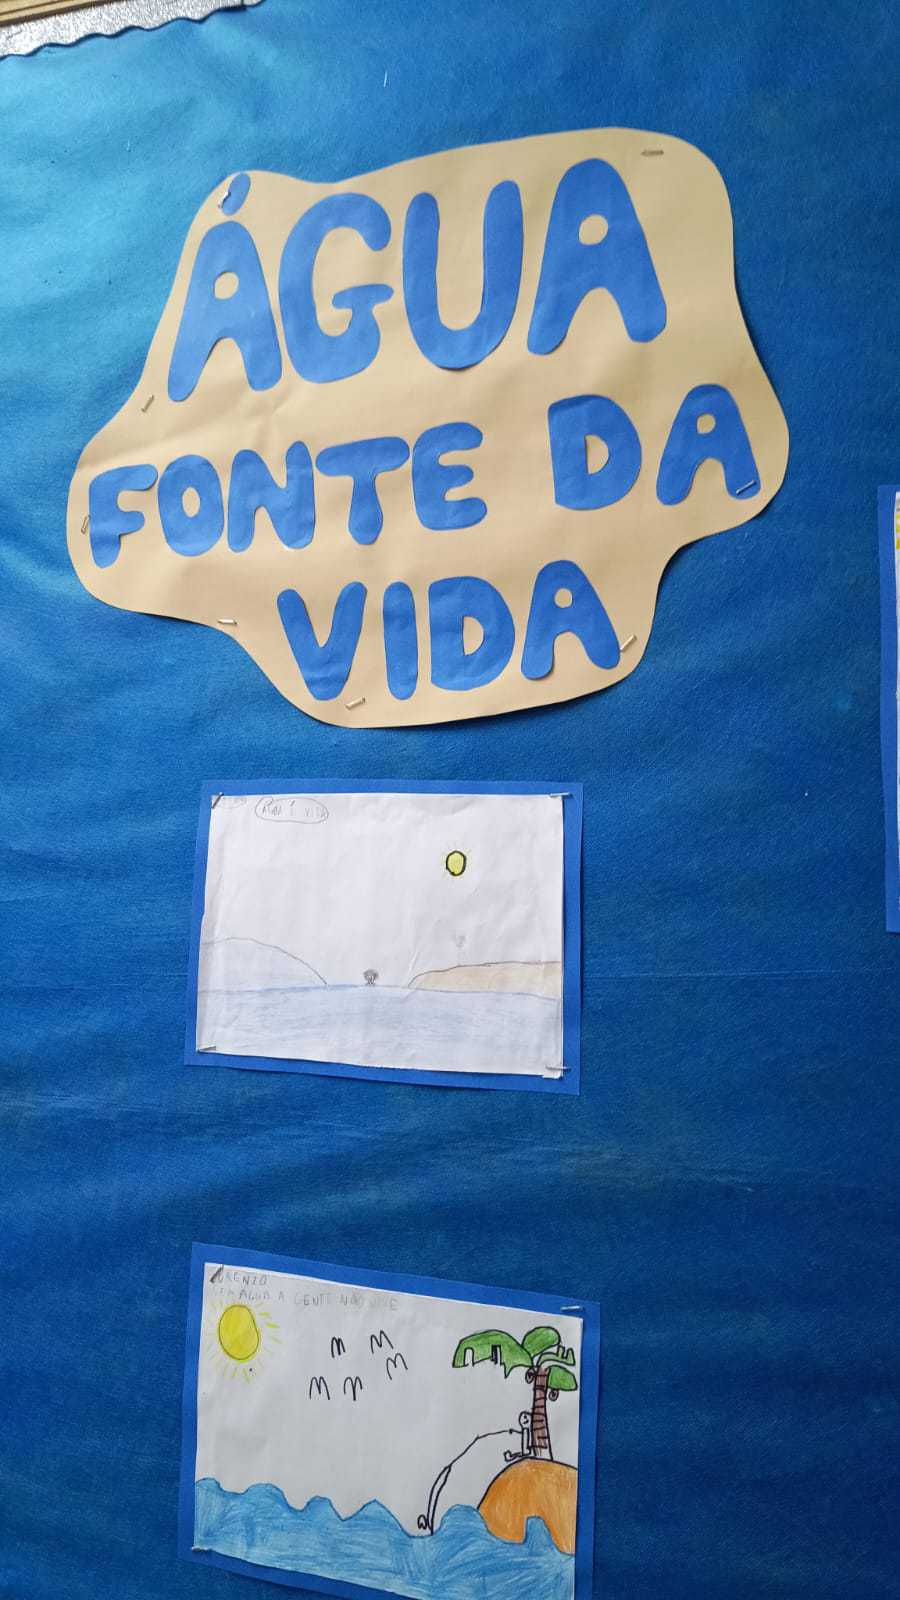 ÁGUA
FONTE DA
VIDA
ÁGUA É VIDA
LORENZO
SEM AGUA A GENTE NÃO VIVE